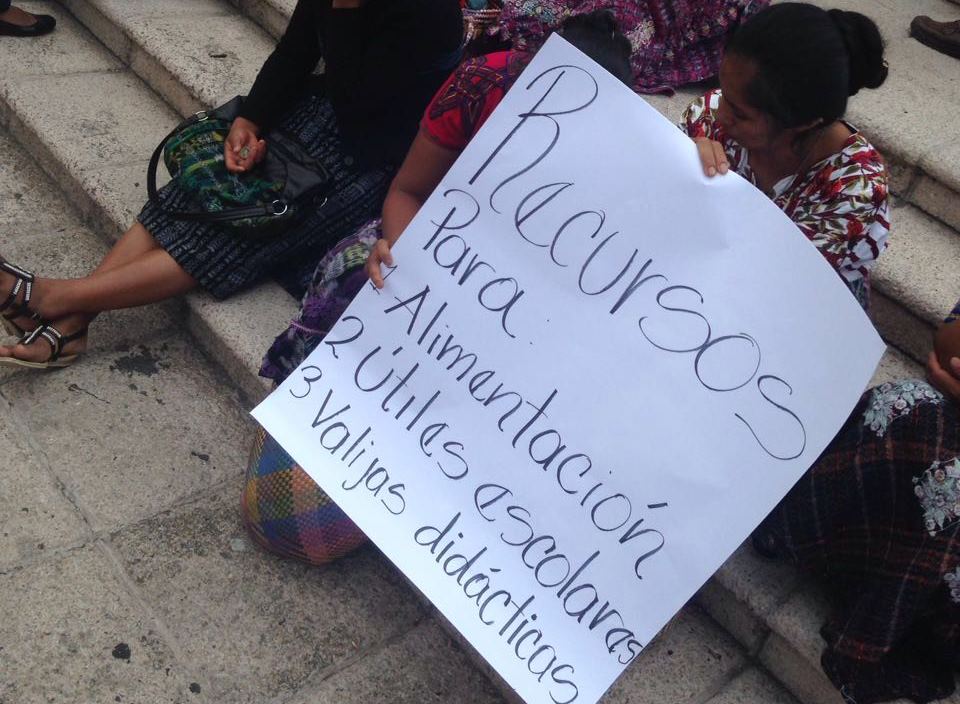 Recursos
Para.
1 Alimentación
2 Útiles escolares
3 Valijas didácticas